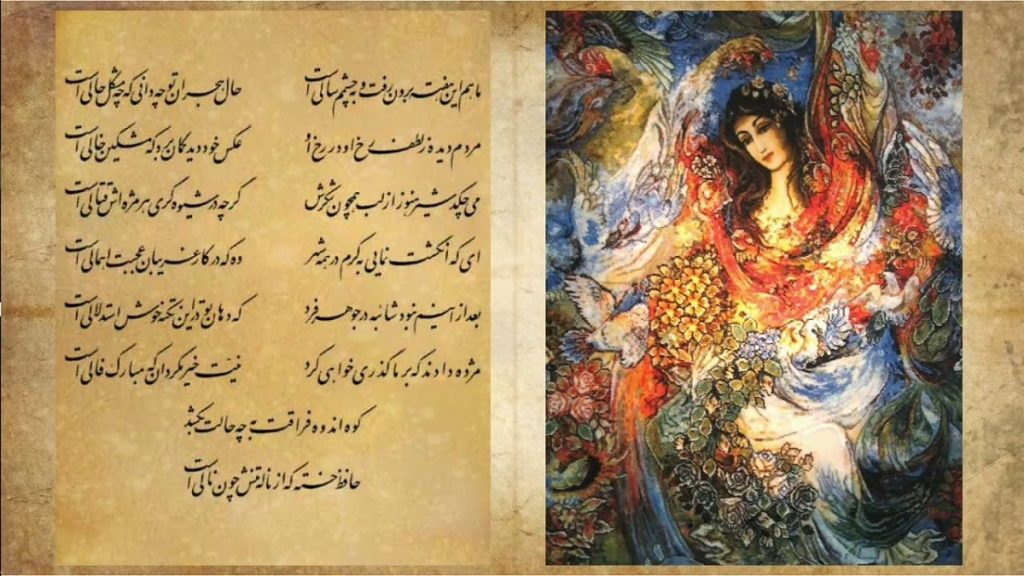 ماهم این هفته برون رفت و بچشمم سالی است حال هجران تو چه دانی که چه مشکل حالی است
مردم دیده ز لطف رخ او در رخ او عکس خود دید گمان برد که مشکین خالی است
می چکد شیر هنوز از لب همچون شکرش گرچه در شیوه گری هر مژه اش قتالی است
ای که انگشت نمایی به کرم در همه شهر وه که در کار غریبان عجبت اهمالی است
بعد از اینم نبود شائبه در جوهر فرد که دهان تو در این نکته خوش استدلالی است
مژده دادند که بر ما گذری خواهی کرد نیت خیر مگردان که مبارک فالی است
کوه اندوه فراقت به چه حالت بکشد
حافظ خسته که از ناله تنش چون نالی است